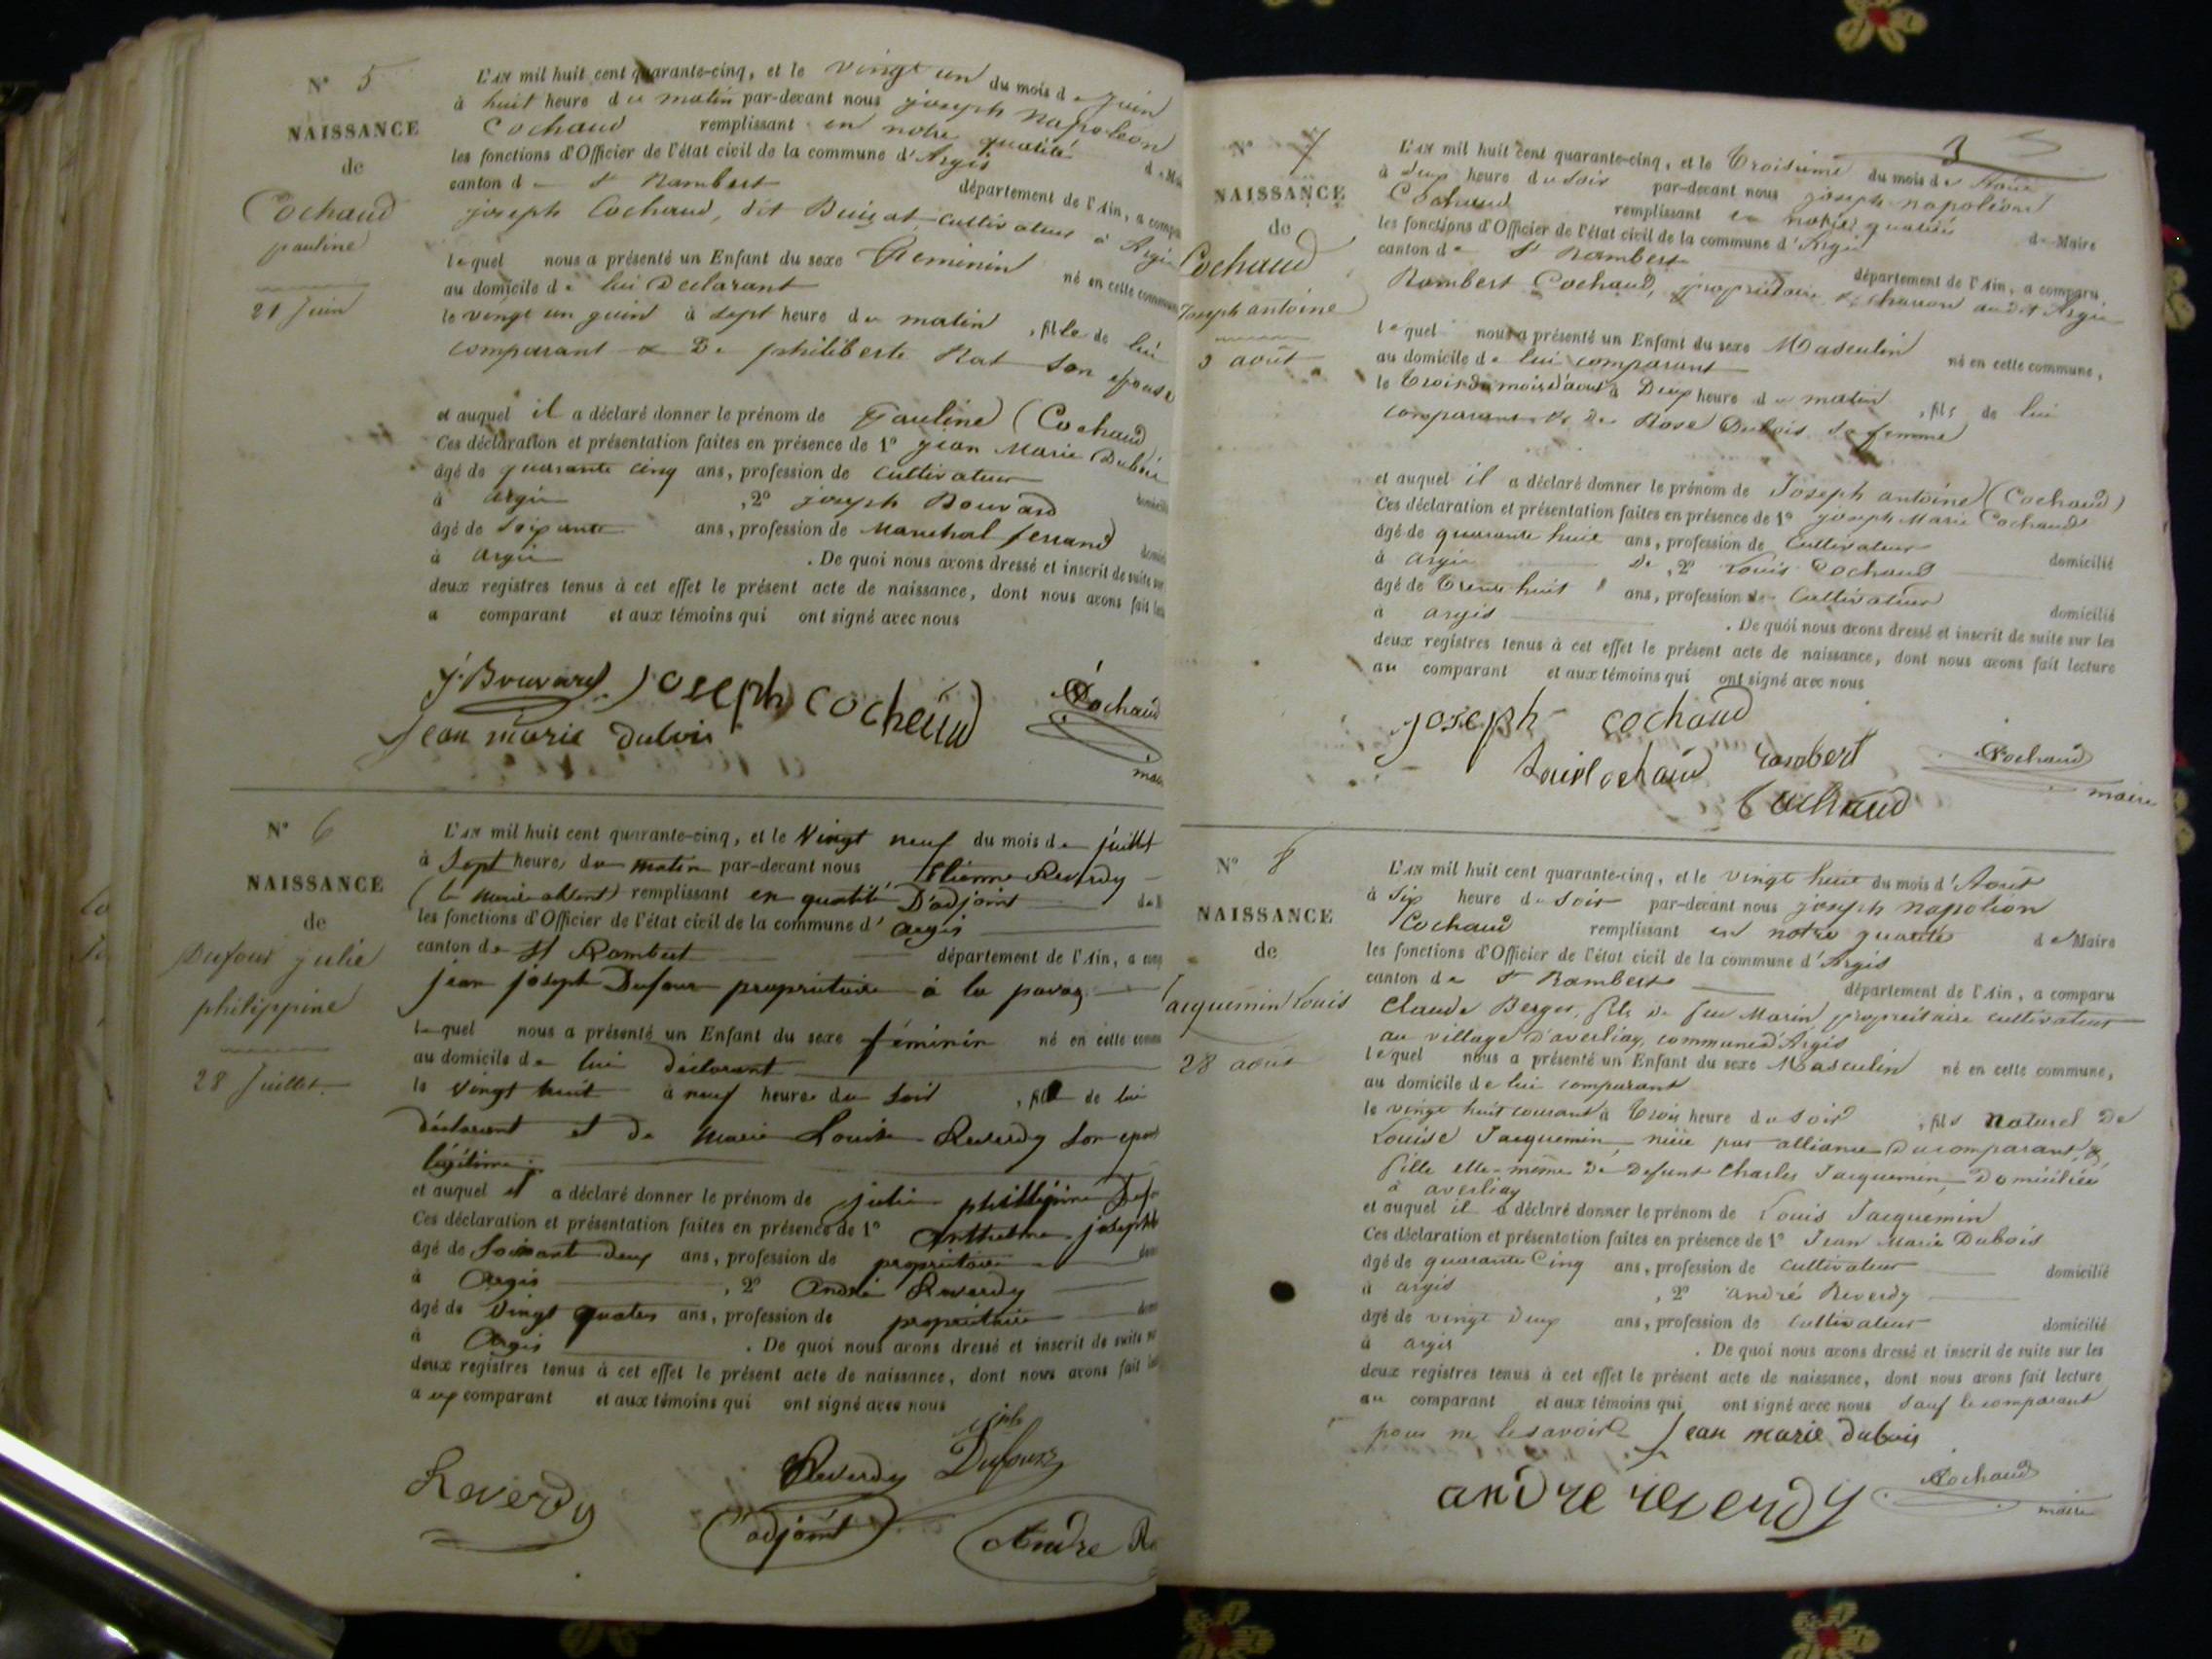 N° 5
NAISSANCE
de
Cochaud
pauline
21 Juin
L'AN mil huit cent quarante-cinq, et le vingt un du mois de Juin
à huit heure du matin par-devant nous joseph Napoléon
Cochaud remplissant en notre qualité de
les fonctions d'Officier de l'état civil de la commune d'Argis
canton de St Rambert département de l'Ain, a
joseph Cochaud, dit Buizat cultivateur à Argis
lequel nous a présenté un Enfant du sexe Féminin né en cette
au domicile de lui Déclarant
le vingt un juin à sept heure du matin , fille de lui
comparant & De philiberte Nat son épouse
et auquel il a déclaré donner le prénom de Pauline (Cochaud
Ces déclaration et présentation faites en présence de 1° jean Marie Dubois
âgé de quarante cinq ans, profession de cultivateur
à argis , 2° joseph Bouvard
âgé de soixante ans, profession de Maréchal ferrand
à argis . De quoi nous avons dressé et inscrit de suite sur
deux registres tenus à cet effet le présent acte de naissance, dont nous avons fait
a comparant et aux témoins qui ont signé avec nous
j. Bouvard joseph cochaud Cochaud
jean marie dubois
N° 6
NAISSANCE
de
Dufour julie
philippine
28 Juillet
L'AN mil huit cent quarante-cinq, et le Vingt neuf du mois de juillet
à Sept heures du matin par-devant nous Etienne Reverdy
(le Maire absent) remplissant en qualité D'adjoint
les fonctions d'Officier de l'état civil de la commune d'argis
canton de St Rambert département de l'Ain, a
jean joseph Dufour propriétaire à la
lequel nous a présenté un Enfant du sexe féminin né en cette
au domicile de lui déclarant
le vingt huit à neuf heures du soir , de lui
déclarant et de Marie Louise Reverdy son
légitime
et auquel il a déclaré donner le prénom de julie philippine
Ces déclaration et présentation faites en présence de 1° Anthelme joseph
âgé de Soixante deux ans, profession de propriétaire
à Argis , 2° André Reverdy
âgé de Vingt quatre ans, profession de propriétaire
à Argis . De quoi nous avons dressé et inscrit de suite
deux registres tenus à cet effet le présent acte de naissance, dont nous avons fait
aux comparant et aux témoins qui ont signé avec nous
Reverdy Reverdy Dufour
adjoint André
3
N° 7
NAISSANCE
de
Cochaud
Joseph antoine
3 août
L'AN mil huit cent quarante-cinq, et le troisième du mois de Août
à deux heure du soir par-devant nous joseph napoléon
Cochaud remplissant en notre qualité de Maire
les fonctions d'Officier de l'état civil de la commune d'Argis
canton de St Rambert département de l'Ain, a comparu
Rambert Cochaud, propriétaire & charron audit Argis
lequel nous a présenté un Enfant du sexe Masculin né en cette commune,
au domicile de lui comparant
le trois du mois d'aout à Deux heure du matin , fils de lui
comparant & De Rose Dubois sa femme
et auquel il a déclaré donner le prénom de Joseph antoine (Cochaud)
Ces déclaration et présentation faites en présence de 1° joseph Marie Cochaud
âgé de quarante huit ans, profession de Cultivateur
à argis De , 2° Louis Cochaud domicilié
âgé de trente huit ans, profession de Cultivateur
à argis domicilié
. De quoi nous avons dressé et inscrit de suite sur les
deux registres tenus à cet effet le présent acte de naissance, dont nous avons fait lecture
au comparant et aux témoins qui ont signé avec nous
joseph cochaud
Louis Cochaud rambert Cochaud
Cochaud maire
N° 8
NAISSANCE
de
Jacquemin Louis
28 août
L'AN mil huit cent quarante-cinq, et le vingt huit du mois d'Août
à six heure du soir par-devant nous joseph napoléon
Cochaud remplissant en notre qualité de Maire
les fonctions d'Officier de l'état civil de la commune d'Argis
canton de St Rambert département de l'Ain, a comparu
Claude Berger, fils de feu Marin, propriétaire cultivateur
au village D'averliaz, commune d'Argis
lequel nous a présenté un Enfant du sexe Masculin né en cette commune,
au domicile de lui comparant
le vingt huit courant à trois heure du soir , fils naturel De
Louise Jacquemin, nièce par alliance Du comparant, &
fille elle-même De Defunt Charles Jacquemin, Domiciliée
à averliaz
et auquel il a déclaré donner le prénom de Louis Jacquemin
Ces déclaration et présentation faites en présence de 1° Jean Marie Dubois
âgé de quarante cinq ans, profession de cultivateur domicilié
à argis , 2° andré Reverdy
âgé de vingt deux ans, profession de cultivateur domicilié
à argis . De quoi nous avons dressé et inscrit de suite sur les
deux registres tenus à cet effet le présent acte de naissance, dont nous avons fait lecture
au comparant et aux témoins qui ont signé avec nous sauf le comparant
pour ne le savoir jean marie dubois
andré reverdy Cochaud
maire